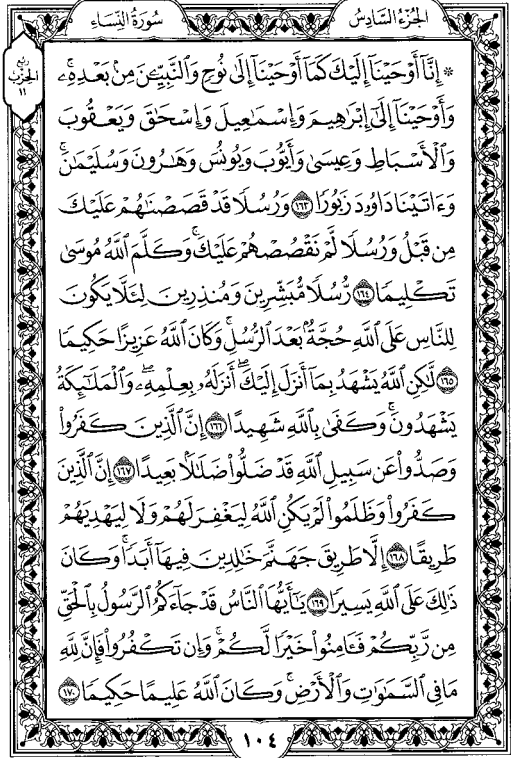 الجُزْءُ السَّادِسُ
سُورَةُ النِّسَاءِ
رُبع
الحِزب
١١
۞ إِنَّآ أَوْحَيْنَآ إِلَيْكَ كَمَآ أَوْحَيْنَآ إِلَىٰ نُوحٍ وَٱلنَّبِيِّـۧنَ مِنۢ بَعْدِهِۦۚ
وَأَوْحَيْنَآ إِلَىٰٓ إِبْرَٰهِيمَ وَإِسْمَٰعِيلَ وَإِسْحَٰقَ وَيَعْقُوبَ
وَٱلْأَسْبَاطِ وَعِيسَىٰ وَأَيُّوبَ وَيُونُسَ وَهَٰرُونَ وَسُلَيْمَٰنَۚ
وَءَاتَيْنَا دَاوُۥدَ زَبُورًا ١٦٣ وَرُسُلًا قَدْ قَصَصْنَٰهُمْ عَلَيْكَ
مِن قَبْلُ وَرُسُلًا لَّمْ نَقْصُصْهُمْ عَلَيْكَۚ وَكَلَّمَ ٱللَّهُ مُوسَىٰ
تَكْلِيمًا ١٦٤ رُّسُلًا مُّبَشِّرِينَ وَمُنذِرِينَ لِئَلَّا يَكُونَ
لِلنَّاسِ عَلَى ٱللَّهِ حُجَّةٌۢ بَعْدَ ٱلرُّسُلِۚ وَكَانَ ٱللَّهُ عَزِيزًا حَكِيمًا
١٦٥ لَّٰكِنِ ٱللَّهُ يَشْهَدُ بِمَآ أَنزَلَ إِلَيْكَۖ أَنزَلَهُۥ بِعِلْمِهِۦۖ وَٱلْمَلَٰٓئِكَةُ
يَشْهَدُونَۚ وَكَفَىٰ بِٱللَّهِ شَهِيدًا ١٦٦ إِنَّ ٱلَّذِينَ كَفَرُوا۟
وَصَدُّوا۟ عَن سَبِيلِ ٱللَّهِ قَدْ ضَلُّوا۟ ضَلَٰلًۢا بَعِيدًا ١٦٧ إِنَّ ٱلَّذِينَ
كَفَرُوا۟ وَظَلَمُوا۟ لَمْ يَكُنِ ٱللَّهُ لِيَغْفِرَ لَهُمْ وَلَا لِيَهْدِيَهُمْ
طَرِيقًا ١٦٨ إِلَّا طَرِيقَ جَهَنَّمَ خَٰلِدِينَ فِيهَآ أَبَدًاۚ وَكَانَ
ذَٰلِكَ عَلَى ٱللَّهِ يَسِيرًا ١٦٩ يَٰٓأَيُّهَا ٱلنَّاسُ قَدْ جَآءَكُمُ ٱلرَّسُولُ بِٱلْحَقِّ
مِن رَّبِّكُمْ فَـَٔامِنُوا۟ خَيْرًا لَّكُمْۚ وَإِن تَكْفُرُوا۟ فَإِنَّ لِلَّهِ
مَا فِى ٱلسَّمَٰوَٰتِ وَٱلْأَرْضِۚ وَكَانَ ٱللَّهُ عَلِيمًا حَكِيمًا ١٧٠
١٠٤